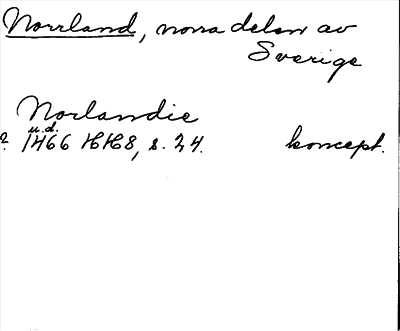 Norrland, norra delen av
Sverige
Norlandie
u.d.
? 1466 HH8, s. 24. koncept.